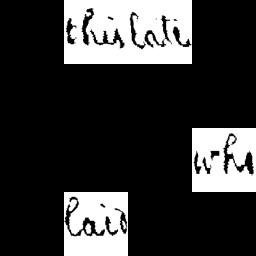 this late
who
laid